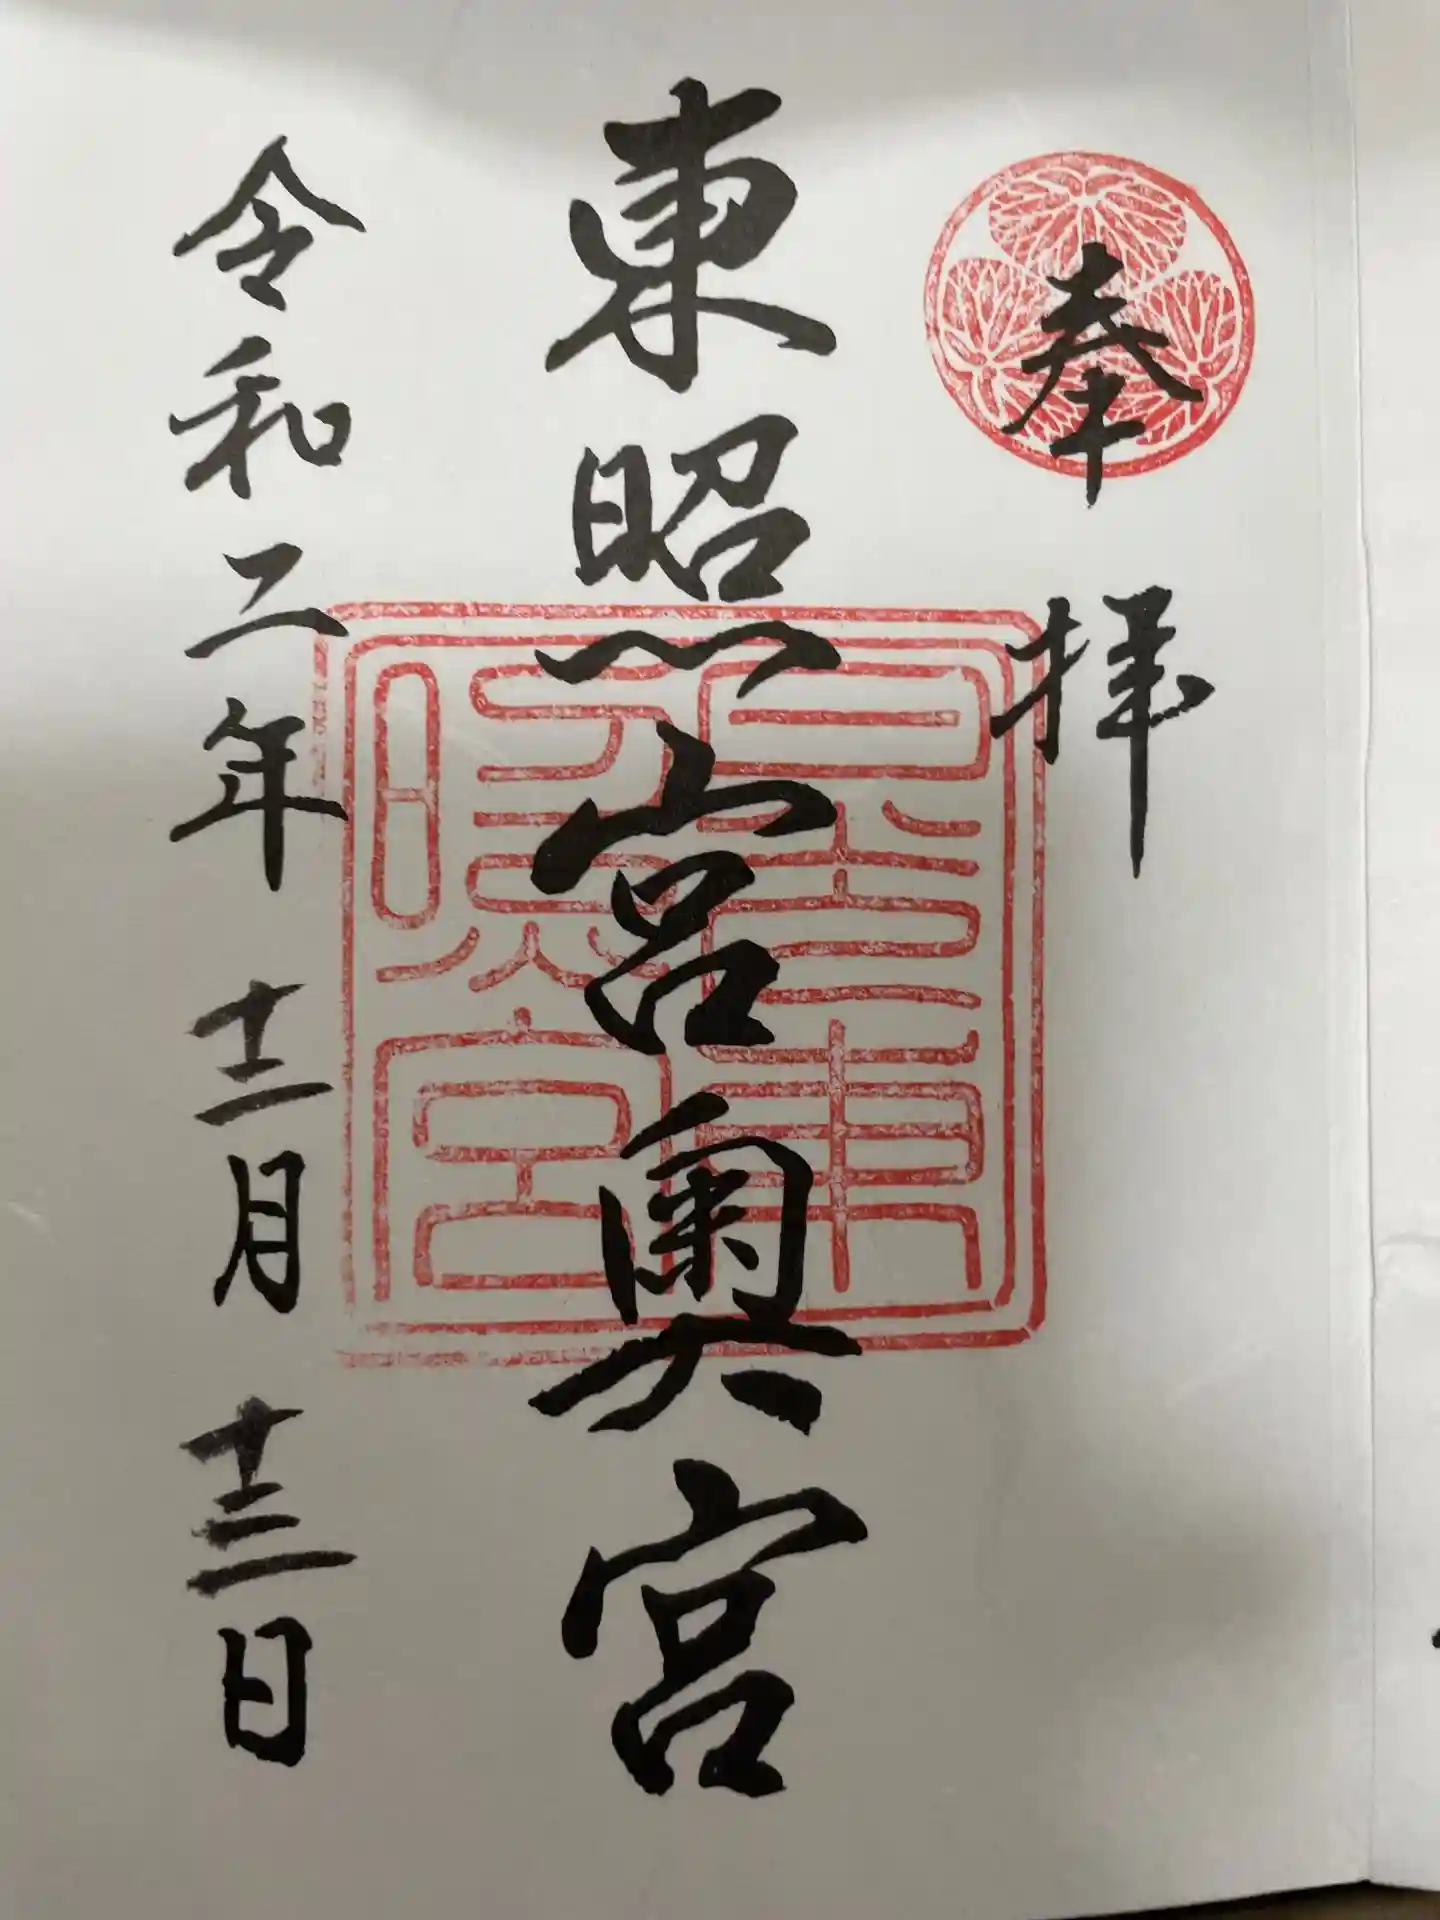 奉拝
東照宮奥宮
日光東照宮
令和二年十二月十三日